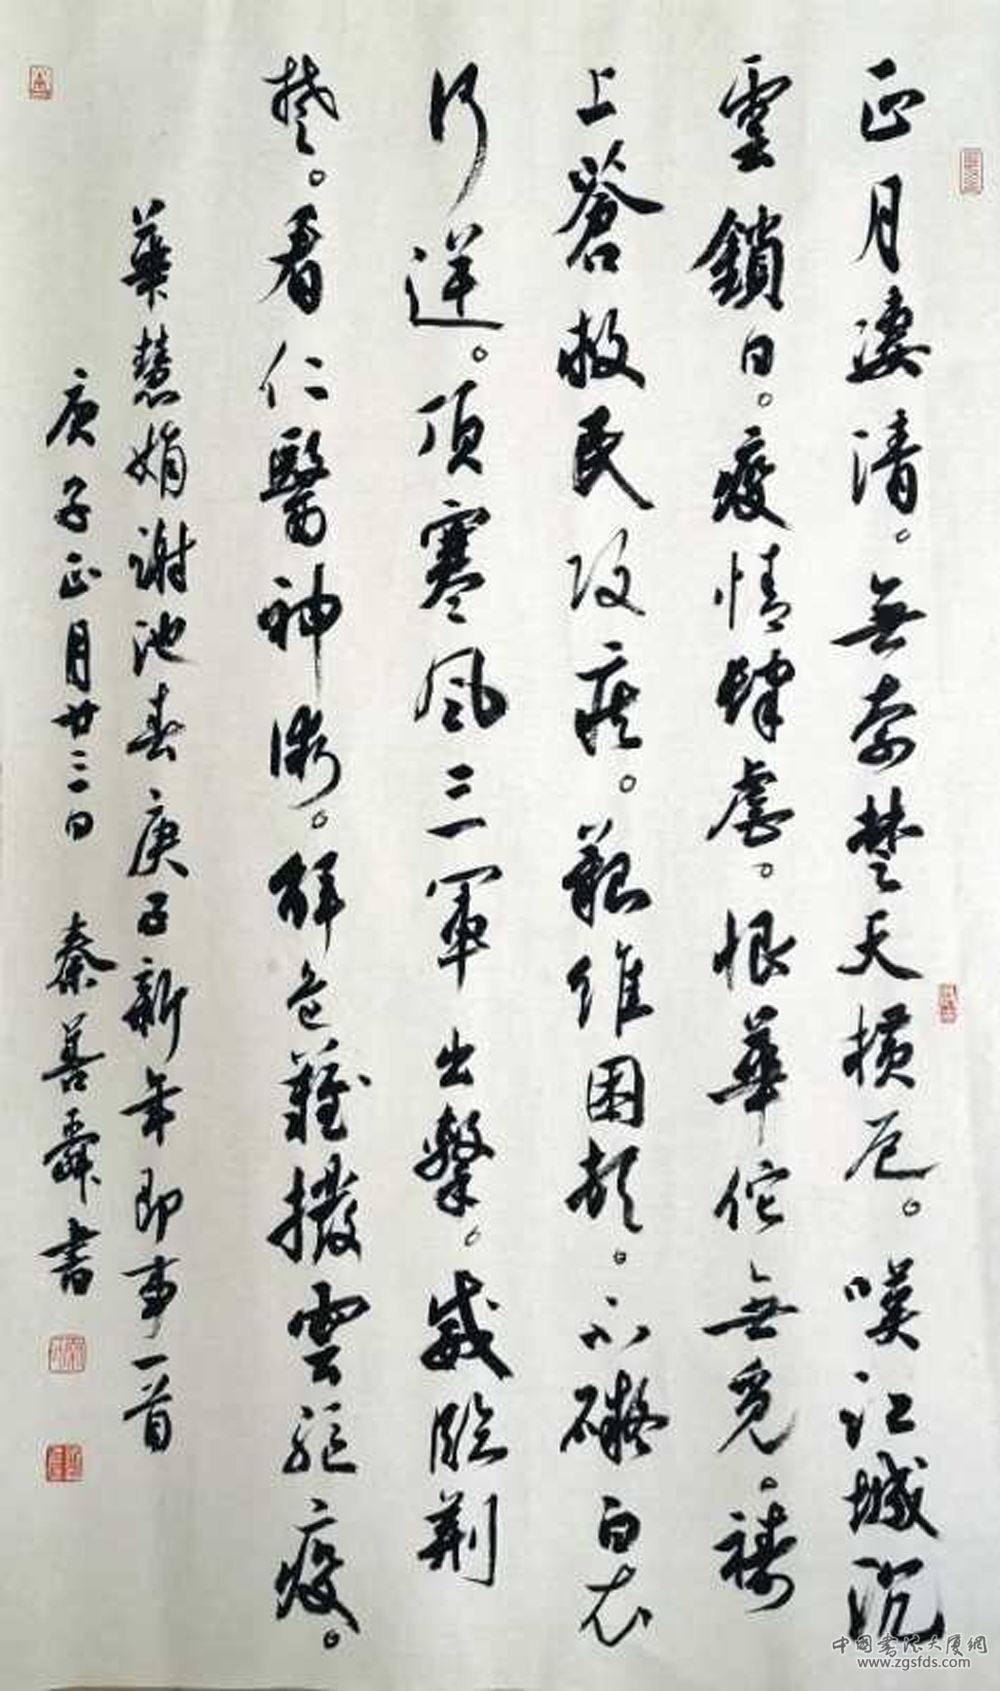 正月凄清。無奈楚天横厄。嘆江城沉
雲鎖日。疫情肆虐。恨華佗無覓。禱
上蒼救民攻疾。艱維困頓。不礙白衣
行逆。頂寒風三軍出擊。威臨荆
楚。看仁醫神術。解危難撥雲驱疫。
葉慧娟谢池春庚子新年即事一首
庚子正月廿三日 秦善舜書
中国書法大厦網
www.zgsfds.com